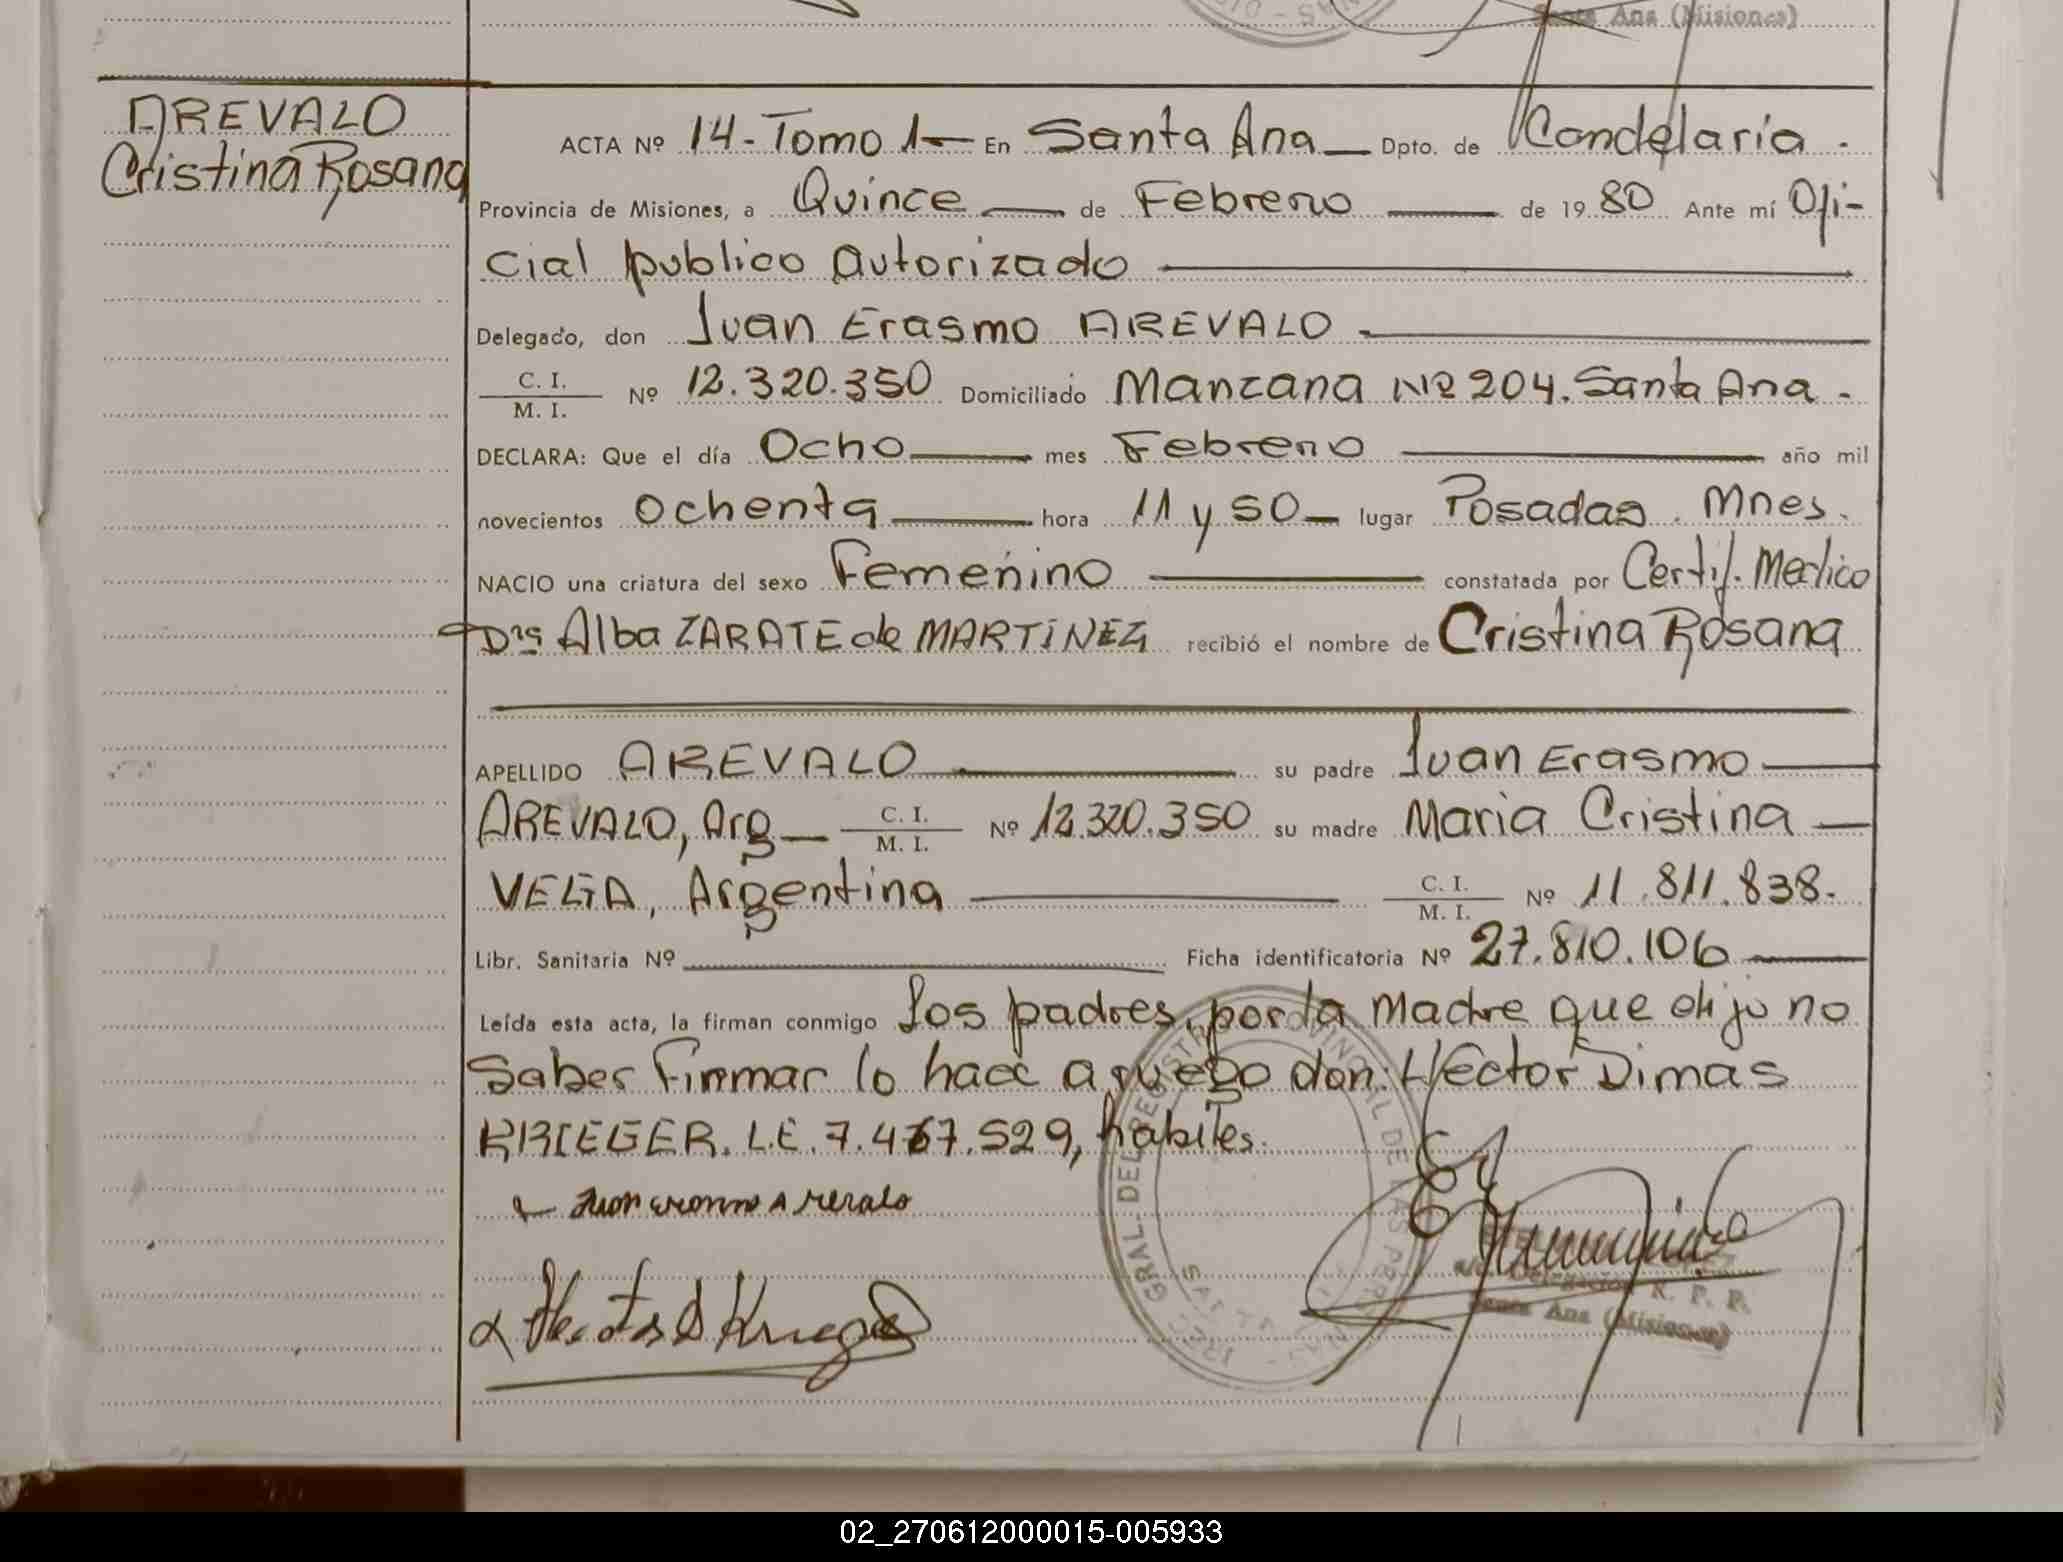 Santa Ana (Misiones)
AREVALO
Cristina Rosana
ACTA Nº 14-Tomo 1- En Santa Ana Dpto. de Candelaria.
Provincia de Misiones, a Quince de Febrero de 1980 Ante mí Ofi-
cial publico autorizado
Delegado, don Juan Erasmo AREVALO
C. I.
M. I. Nº 12.320.350 Domiciliado Manzana Nº 204. Santa Ana.
DECLARA: Que el día Ocho mes Febrero año mil
novecientos ochenta hora 11 y 50 lugar Posadas. Mnes.
NACIO una criatura del sexo Femenino constatada por Certif. Medico
Dra Alba ZARATE de MARTINEZ recibió el nombre de Cristina Rosana
APELLIDO AREVALO su padre Juan Erasmo
AREVALO, Arg C. I. M. I. Nº 12.320.350 su madre Maria Cristina
VEGA, Argentina C. I. M. I. Nº 11.811.838.
Libr. Sanitaria Nº Ficha identificatoria Nº 27.810.106
Leída esta acta, la firman conmigo Los padres, por la Madre que dijo no
Saber Firmar lo hace a ruego don: Hector Dimas
KRIEGER. L.E. 7.467.529, habiles.
Santa Ana (Misiones)
02_270612000015-005933